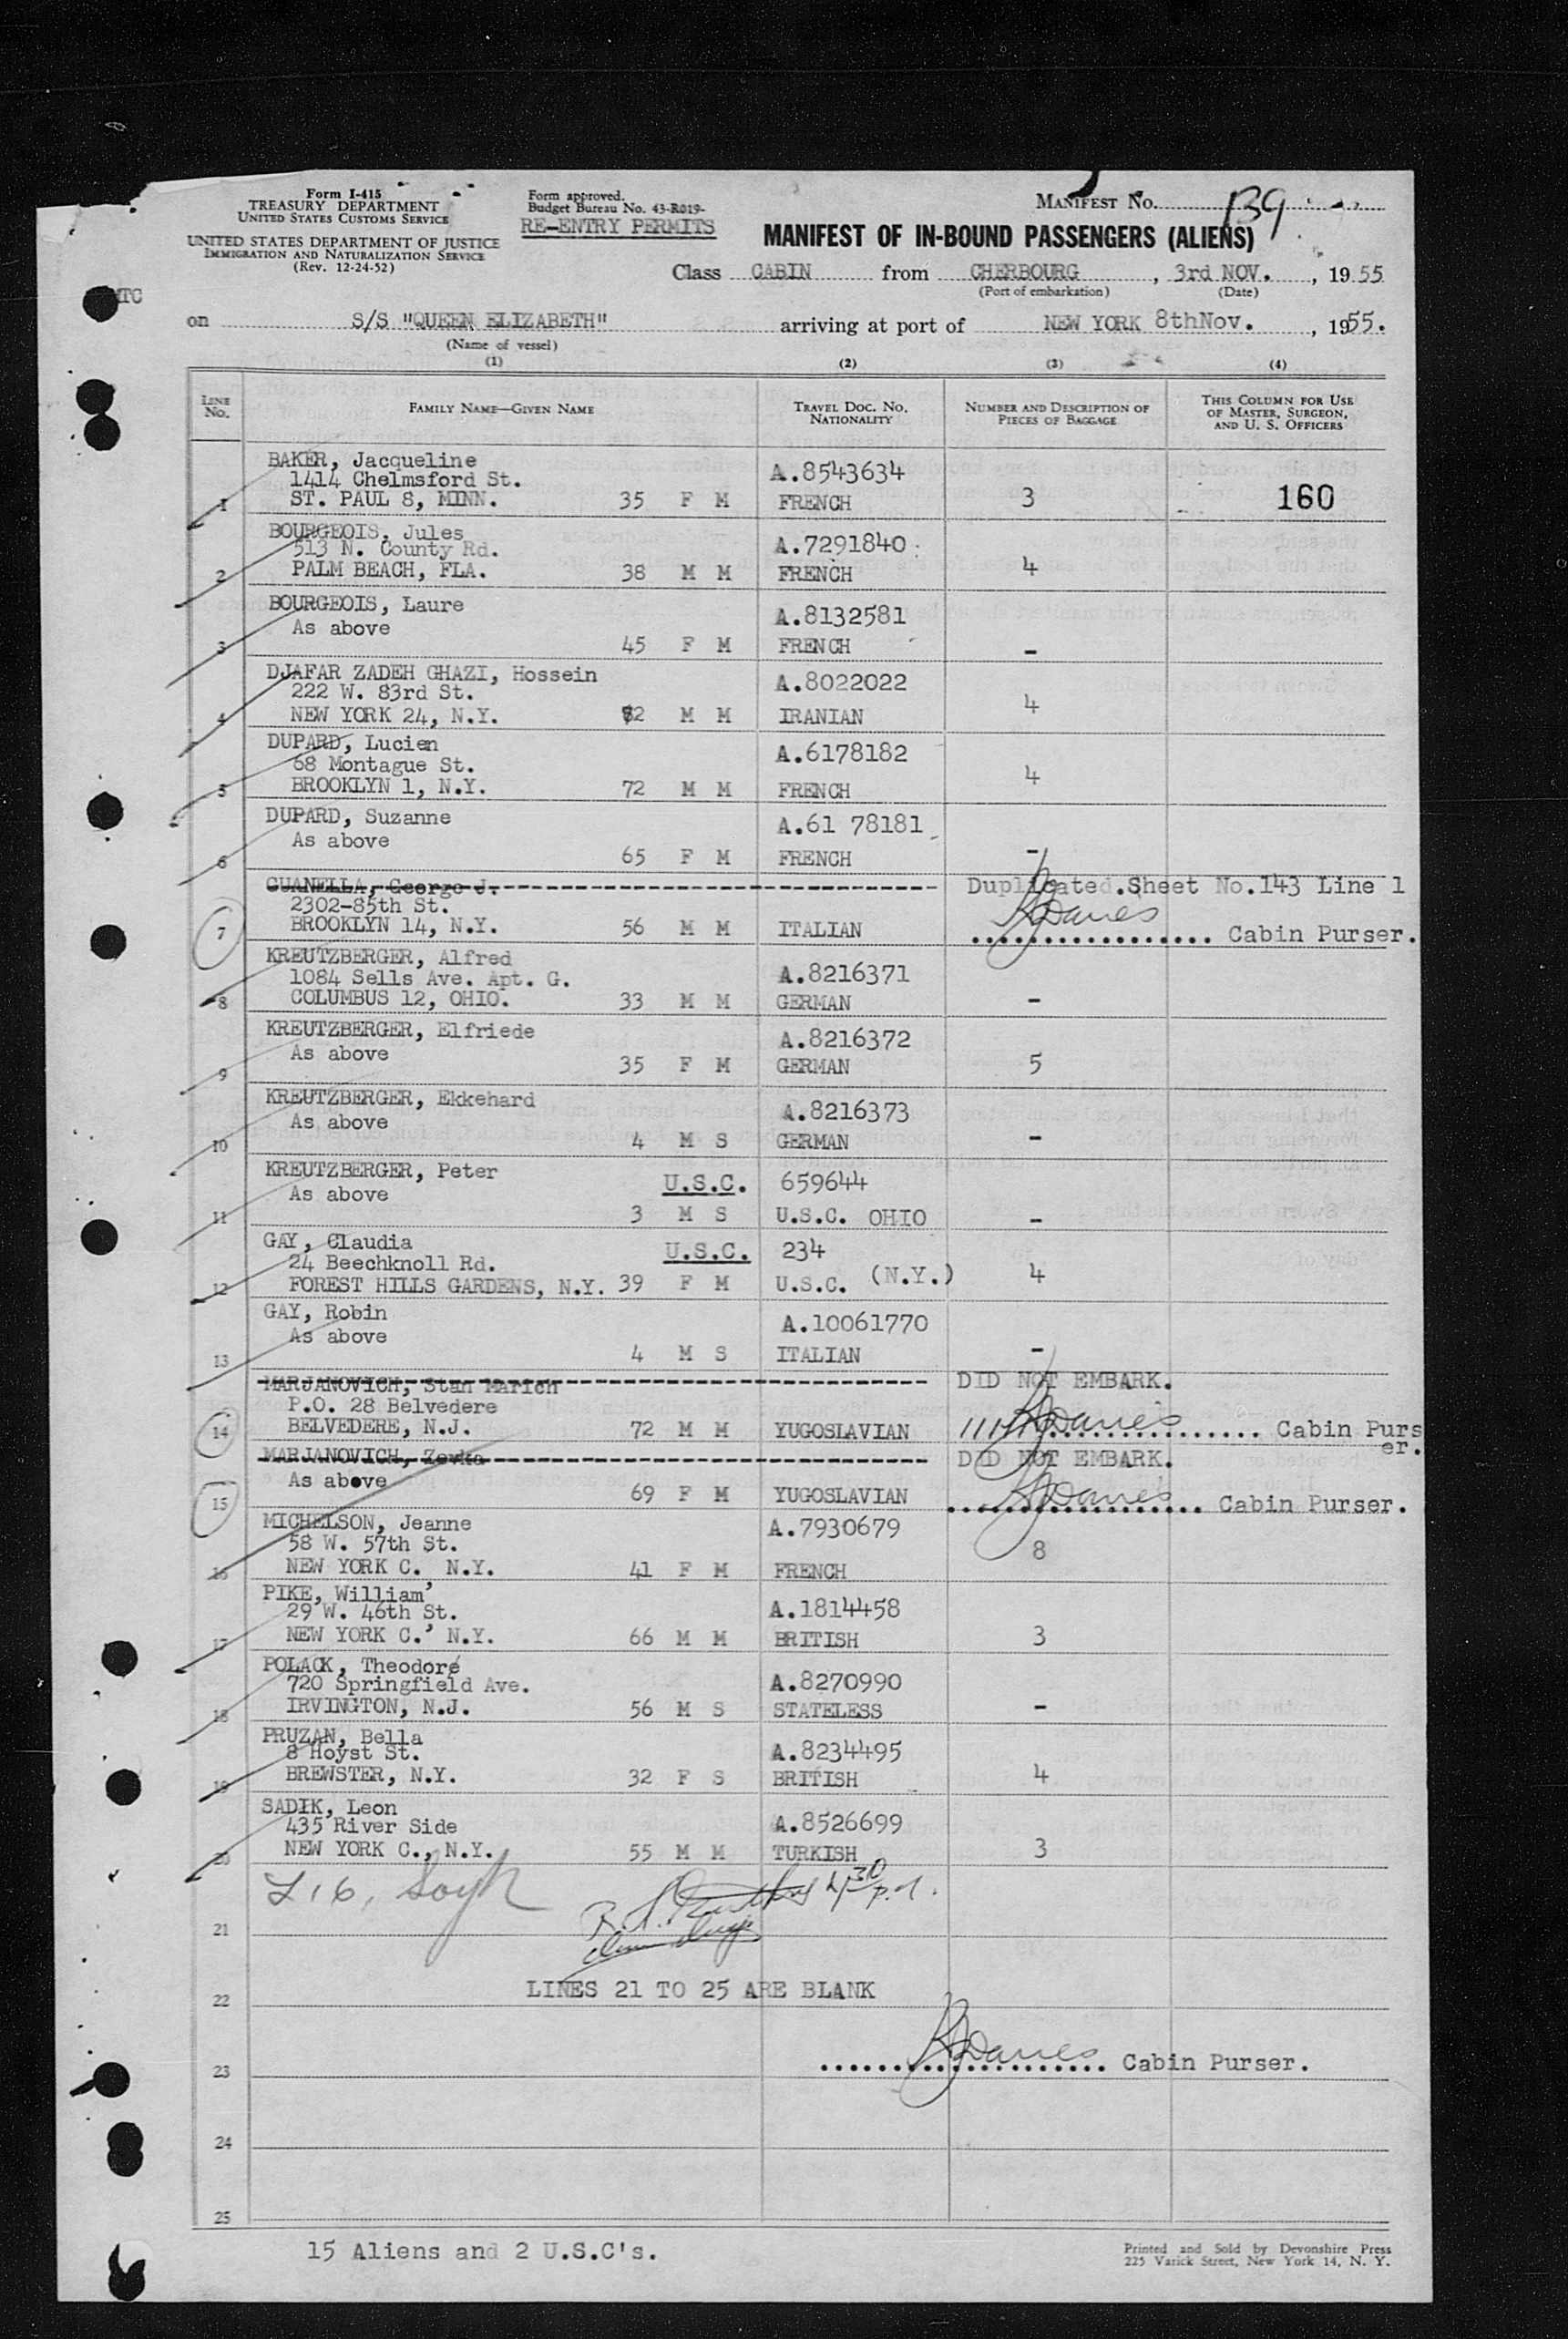 Form I-415
TREASURY DEPARTMENT
UNITED STATES CUSTOMS SERVICE
UNITED STATES DEPARTMENT OF JUSTICE
IMMIGRATION AND NATURALIZATION SERVICE
(Rev. 12-24-52)
Form approved.
Budget Bureau No. 43-R019-
RE-ENTRY PERMITS
MANIFEST NO. 139
MANIFEST OF IN-BOUND PASSENGERS (ALIENS)
Class CABIN from CHERBOURG, 3rd NOV., 1955
(Port of embarkation) (Date)
on S/S "QUEEN ELIZABETH" arriving at port of NEW YORK 8thNov., 1955.
(Name of vessel)
(1) (2) (3) (4)
LINE NO. FAMILY NAME—GIVEN NAME TRAVEL DOC. NO. NATIONALITY NUMBER AND DESCRIPTION OF PIECES OF BAGGAGE THIS COLUMN FOR USE OF MASTER, SURGEON, AND U. S. OFFICERS
BAKER, Jacqueline A.8543634
1414 Chelmsford St.
1 ST. PAUL 8, MINN. 35 F M FRENCH 3 160
BOURGEOIS, Jules A.7291840
513 N. County Rd.
2 PALM BEACH, FLA. 38 M M FRENCH 4
BOURGEOIS, Laure A.8132581
As above
3 45 F M FRENCH -
DJAFAR ZADEH GHAZI, Hossein A.8022022
222 W. 83rd St.
4 NEW YORK 24, N.Y. 2 M M IRANIAN 4
DUPARD, Lucien A.6178182
68 Montague St.
5 BROOKLYN 1, N.Y. 72 M M FRENCH 4
DUPARD, Suzanne A.61 78181
As above
6 65 F M FRENCH -
GUANELLA, George J. Duplicated.Sheet No.143 Line 1
2302-85th St.
7 BROOKLYN 14, N.Y. 56 M M ITALIAN Davies Cabin Purser.
KREUTZBERGER, Alfred A.8216371
1084 Sells Ave. Apt. G.
8 COLUMBUS 12, OHIO. 33 M M GERMAN -
KREUTZBERGER, Elfriede A.8216372
As above
9 35 F M GERMAN 5
KREUTZBERGER, Ekkehard A.8216373
As above
10 4 M S GERMAN -
KREUTZBERGER, Peter U.S.C. 659644
As above
11 3 M S U.S.C. OHIO -
GAY, Claudia U.S.C. 234
24 Beechknoll Rd.
12 FOREST HILLS GARDENS, N.Y. 39 F M U.S.C. (N.Y.) 4
GAY, Robin A.10061770
As above
13 4 M S ITALIAN -
MARJANOVICH, Stan Marich DID NOT EMBARK.
P.O. 28 Belvedere
14 BELVEDERE, N.J. 72 M M YUGOSLAVIAN Davies Cabin Purser.
MARJANOVICH, Zevka DID NOT EMBARK.
As above
15 69 F M YUGOSLAVIAN Davies Cabin Purser.
MICHELSON, Jeanne A.7930679
58 W. 57th St.
16 NEW YORK C. N.Y. 41 F M FRENCH 8
PIKE, William A.1814458
29 W. 46th St.
17 NEW YORK C. N.Y. 66 M M BRITISH 3
POLACK, Theodore A.8270990
720 Springfield Ave.
18 IRVINGTON, N.J. 56 M S STATELESS -
PRUZAN, Bella A.8234495
8 Hoyst St.
19 BREWSTER, N.Y. 32 F S BRITISH 4
SADIK, Leon A.8526699
435 River Side
20 NEW YORK C., N.Y. 55 M M TURKISH 3
21
LINES 21 TO 25 ARE BLANK
22
Davies Cabin Purser.
23
24
25
15 Aliens and 2 U.S.C's.
Printed and Sold by Devonshire Press
225 Varick Street, New York 14, N. Y.